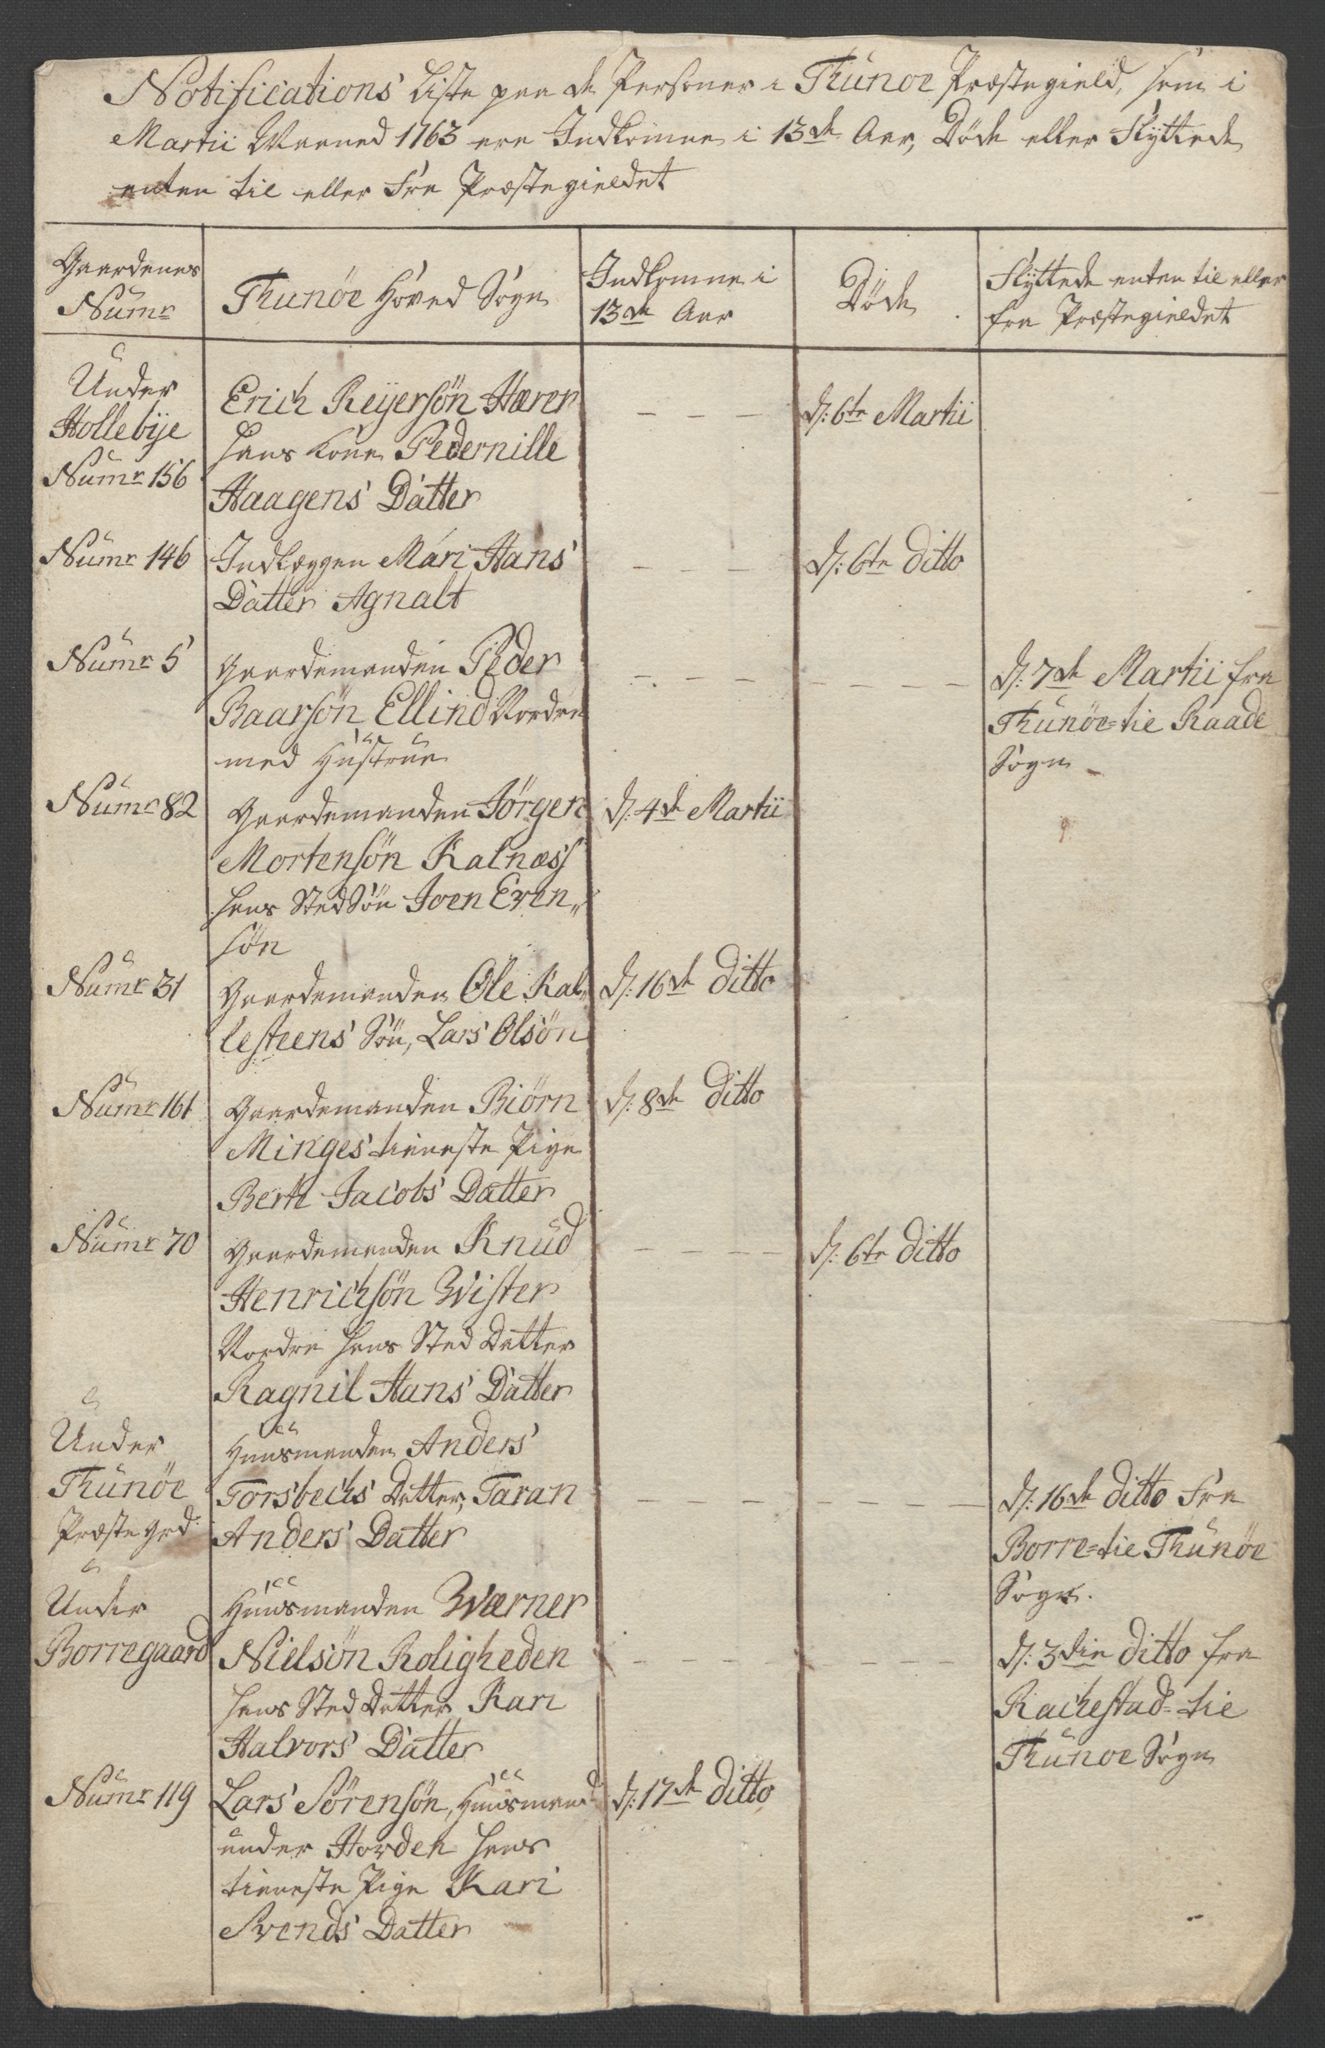 Notifications Liste paa de Personer i Thunøe Præstegield, som i
Martii Maaned 1763 ere Indkomne i 13de Aar, Døde eller Flyttede
enten til eller Fra Præstegieldet
Gaardenes
Numr
Thunøe Hoved Sogn
Indkomne i
13de Aar
Døde
Flyttede enten til eller
fra Præstegieldet
Under
Hollebÿe
Numr 156
Erich Reÿersøn Hærer
hans Kone Pedernille
Haagens Datter
_ _ _
d: 6te Martii
Numr 146
Indlæggen Mari Hans
Datter Agnalt
_ _ _
d: 6te ditto
Numr 5
Gaardemanden Peder
Baarsøn Ellind Nordre
med Hustrue
_ _ _ _ _ _ _
d: 7de Martii fra
Thunøe=til Raade
Sogn
Numr 82
Gaardemanden Jørgen
Mortensøn Kalnæss
hans StedSøn Joen Even„
søn
d: 4de Martii
Numr 31
Gaardemanden Ole Kal„
lesteens Søn, Lars Olsøn
d: 16de ditto
Numr 161
Gaardemanden Biørn
Minges tieneste Pige
Berth Jacobs Datter
d: 8de ditto
Numr 70
Gaardemanden Knud
Henrichsøn Wister
Nordre hans Sted Datter
Ragnil Hans Datter
_ _ _ _
d: 6te ditto
Under
Thunøe
Præste grd:
Huusmanden Anders
Torsbechs Datter, Taran
Anders Datter
_ _ _ _ _ _ _
d: 16de ditto Fra
Borre=til Thunøe
Sogn.
Under
Borregaard
Huusmanden Wærner
Nielsøn Roligheden
hans Sted Datter Kari
Halvors Datter
_ _ _ _ _ _ _
d: 3die ditto fra
Rachestad=til
Thunøe Sogn
Numr 119
Lars Sørensøn, Huusmand
under Horden hans
tieneste Pige Kari
Svends Datter
d: 17de ditto